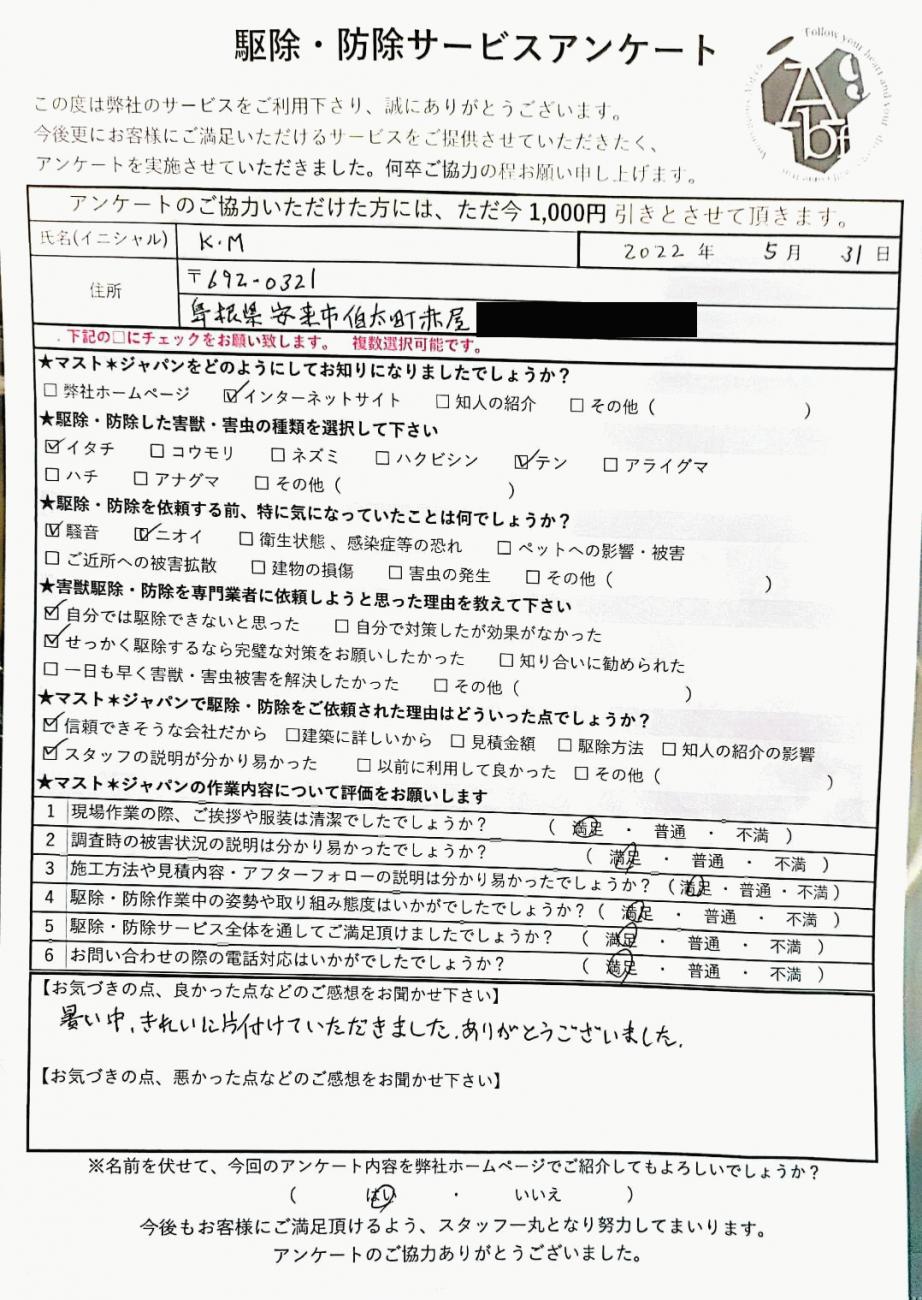 駆除・防除サービスアンケート
Follow your heart and your
A g
bf
この度は弊社のサービスをご利用下さり、誠にありがとうございます。
今後更にお客様にご満足いただけるサービスをご提供させていただきたく、
アンケートを実施させていただきました。何卒ご協力の程お願い申し上げます。
アンケートのご協力いただけた方には、ただ今 1,000円 引きとさせて頂きます。
氏名(イニシャル) K・M 2022 年 5 月 31 日
住所 〒692-0321
島根県安来市伯太町赤屋
.下記の□にチェックをお願い致します。 複数選択可能です。
★マスト✶ジャパンをどのようにしてお知りになりましたでしょうか?
□ 弊社ホームページ ☑ インターネットサイト □ 知人の紹介 □ その他 ( )
★駆除・防除した害獣・害虫の種類を選択して下さい
☑ イタチ □ コウモリ □ ネズミ □ ハクビシン ☑ テン □ アライグマ
□ ハチ □ アナグマ □ その他 ( )
★駆除・防除を依頼する前、特に気になっていたことは何でしょうか?
☑ 騒音 ☑ ニオイ □ 衛生状態 、感染症等の恐れ □ ペットへの影響・被害
□ ご近所への被害拡散 □ 建物の損傷 □ 害虫の発生 □ その他 ( )
★害獣駆除・防除を専門業者に依頼しようと思った理由を教えて下さい
☑ 自分では駆除できないと思った □ 自分で対策したが効果がなかった
☑ せっかく駆除するなら完璧な対策をお願いしたかった □ 知り合いに勧められた
□ 一日も早く害獣・害虫被害を解決したかった □ その他 ( )
★マスト✶ジャパンで駆除・防除をご依頼された理由はどういった点でしょうか?
☑ 信頼できそうな会社だから □建築に詳しいから □ 見積金額 □ 駆除方法 □ 知人の紹介の影響
☑ スタッフの説明が分かり易かった □ 以前に利用して良かった □ その他 ( )
★マスト✶ジャパンの作業内容について評価をお願いします
1 現場作業の際、ご挨拶や服装は清潔でしたでしょうか? ( 満足 ・ 普通 ・ 不満 )
2 調査時の被害状況の説明は分かり易かったでしょうか? ( 満足 ・ 普通 ・ 不満 )
3 施工方法や見積内容・アフターフォローの説明は分かり易かったでしょうか? ( 満足・普通・不満 )
4 駆除・防除作業中の姿勢や取り組み態度はいかがでしたでしょうか? ( 満足 ・ 普通 ・ 不満 )
5 駆除・防除サービス全体を通してご満足頂けましたでしょうか? ( 満足 ・ 普通 ・ 不満 )
6 お問い合わせの際の電話対応はいかがでしたでしょうか? ( 満足 ・ 普通 ・ 不満 )
【お気づきの点、良かった点などのご感想をお聞かせ下さい】
暑い中、きれいに片付けていただきました。ありがとうございました。
【お気づきの点、悪かった点などのご感想をお聞かせ下さい】
※名前を伏せて、今回のアンケート内容を弊社ホームページでご紹介してもよろしいでしょうか?
( はい ・ いいえ )
今後もお客様にご満足頂けるよう、スタッフ一丸となり努力してまいります。
アンケートのご協力ありがとうございました。